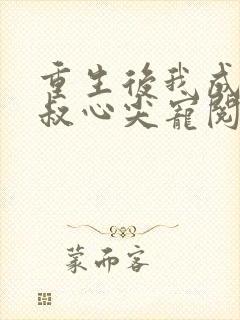 重生後我成
叔心尖寵閱
蒙而客